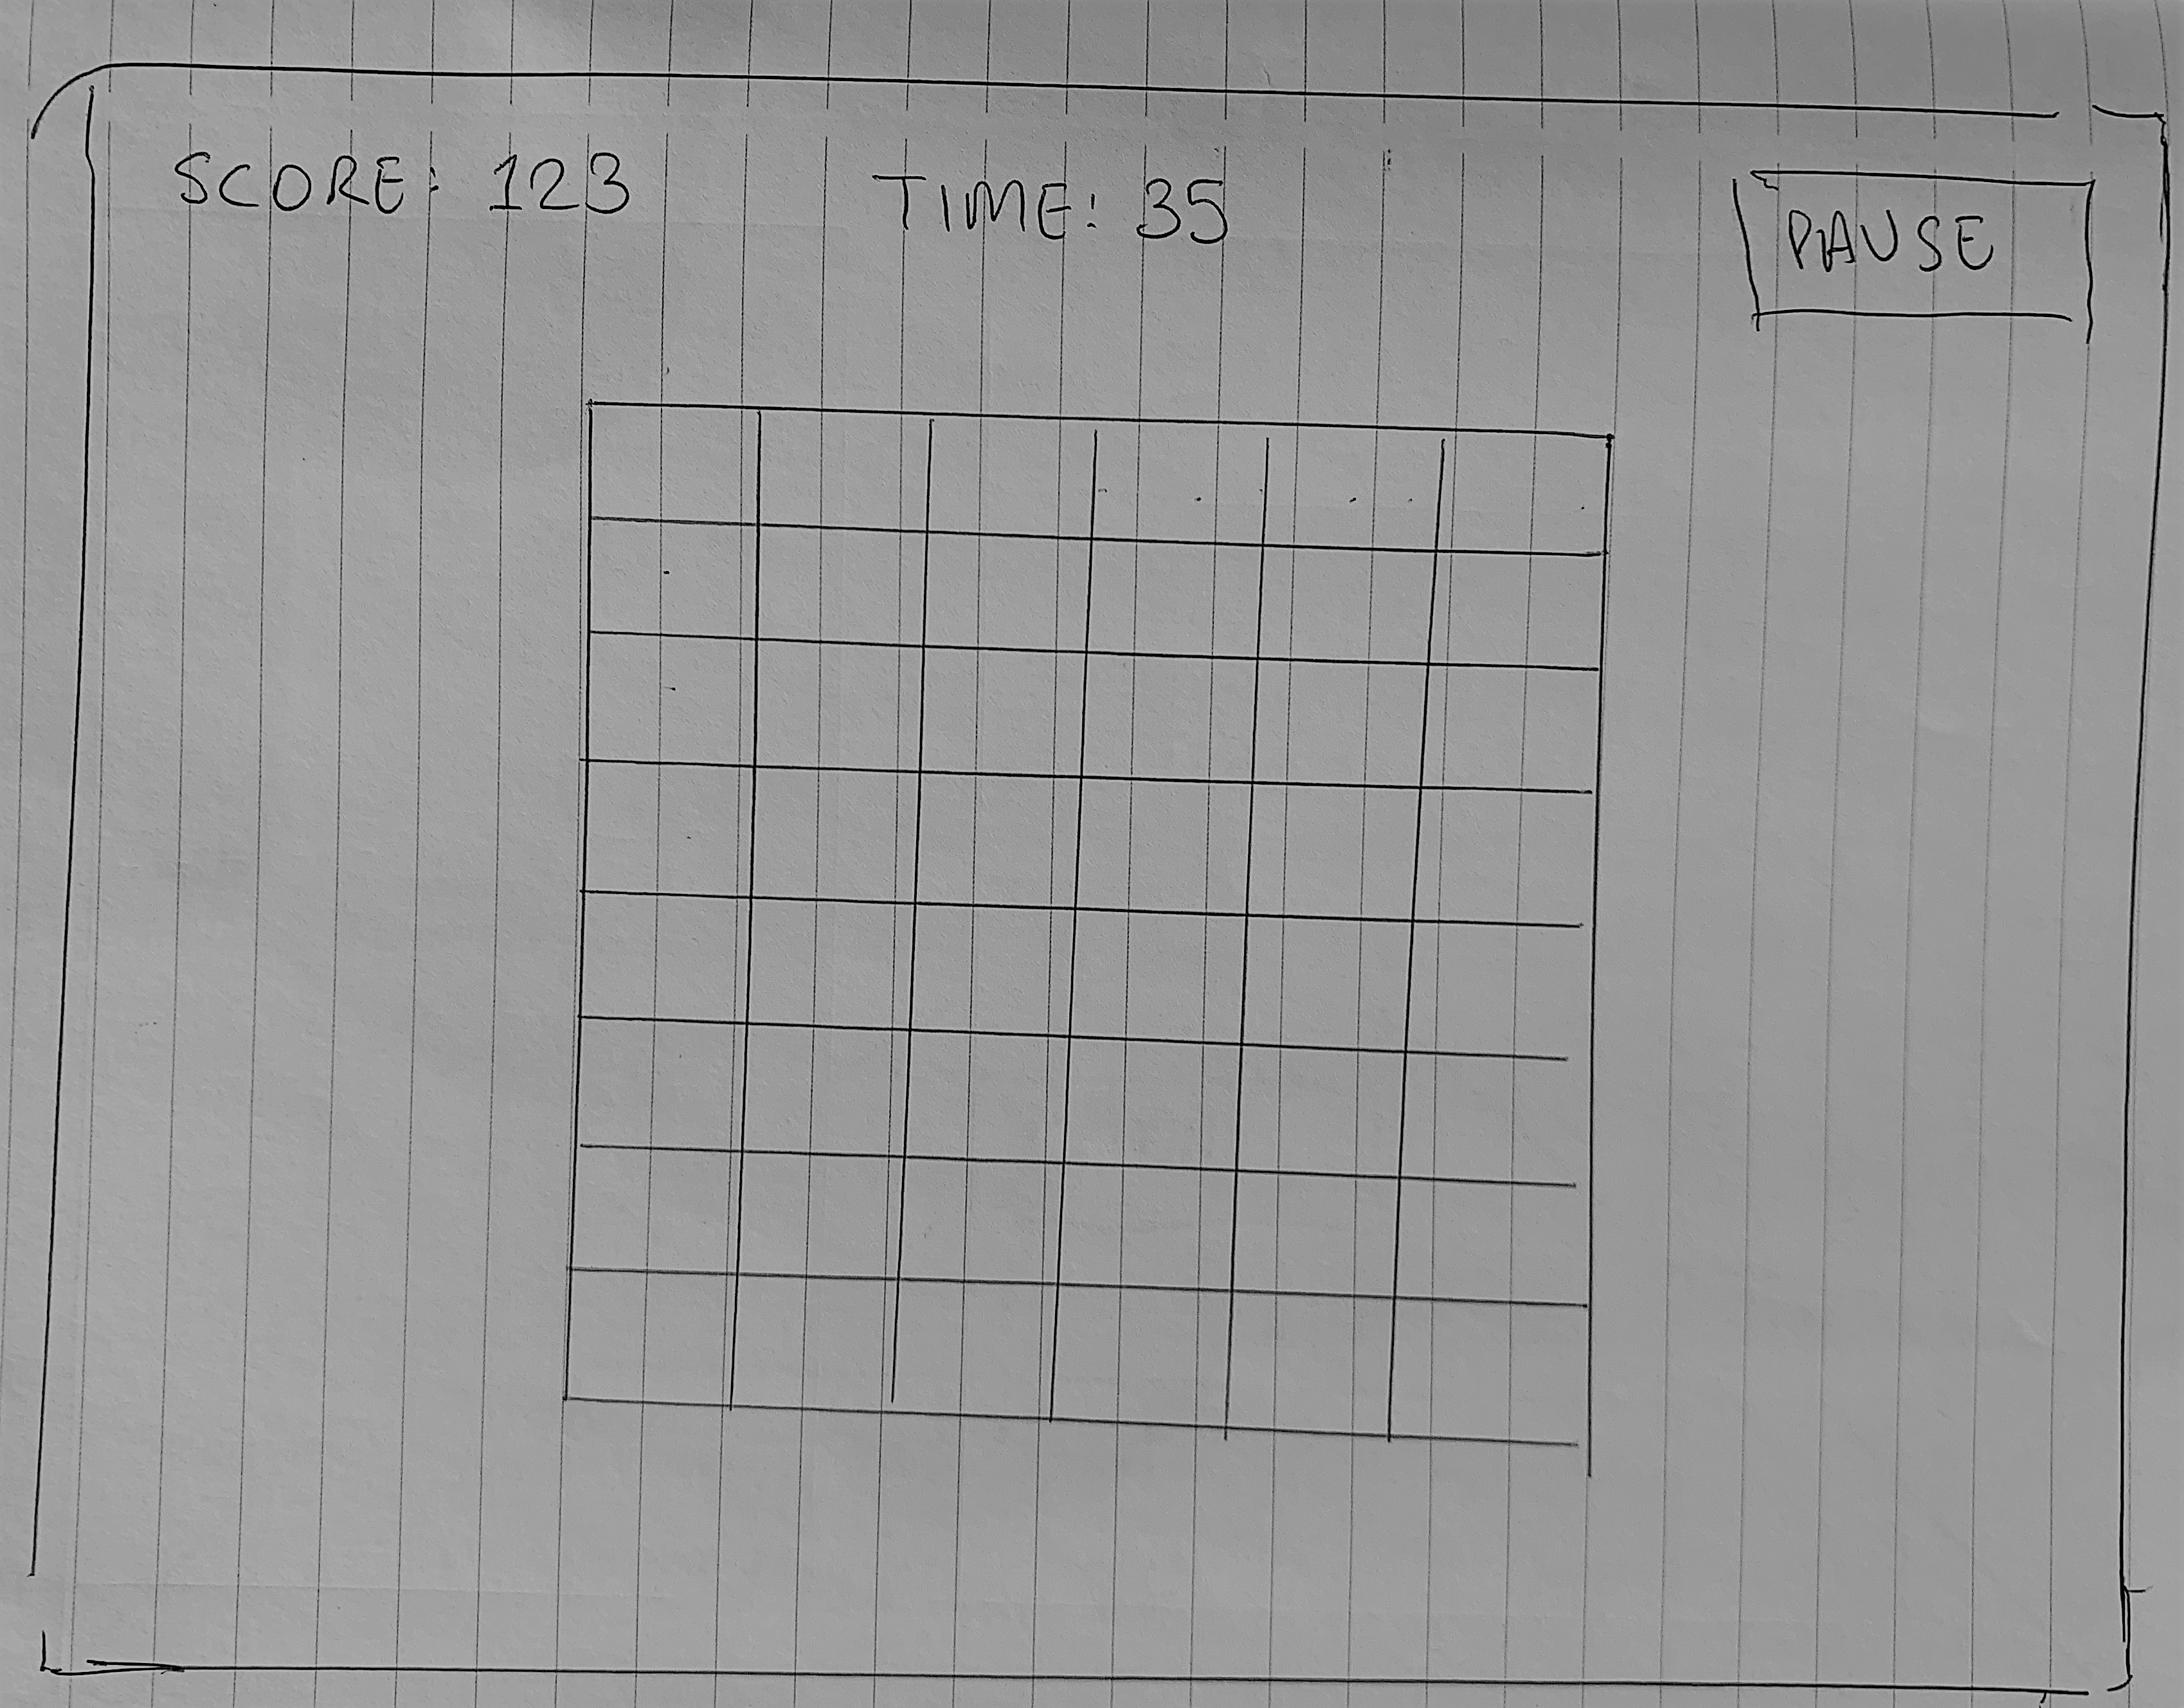 SCORE: 123
TIME: 35
PAUSE